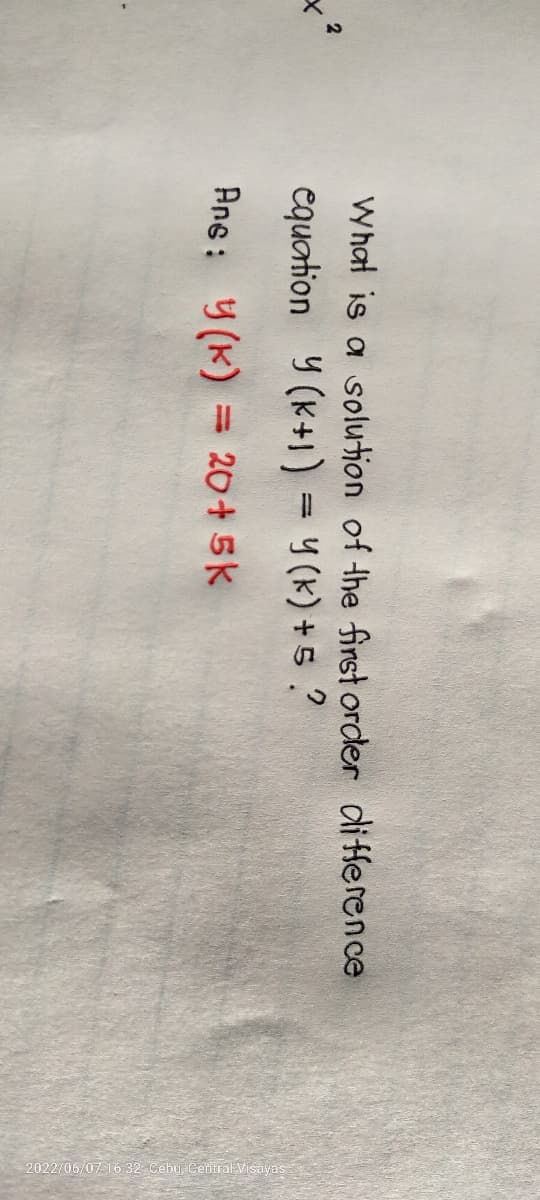 x²
What is a solution of the first order difference
equation y(k+1) = y(k) + 5.?
Ans: y(k) = 20 + 5k
2022/06/07 16:32 Cebu, Central Visayas